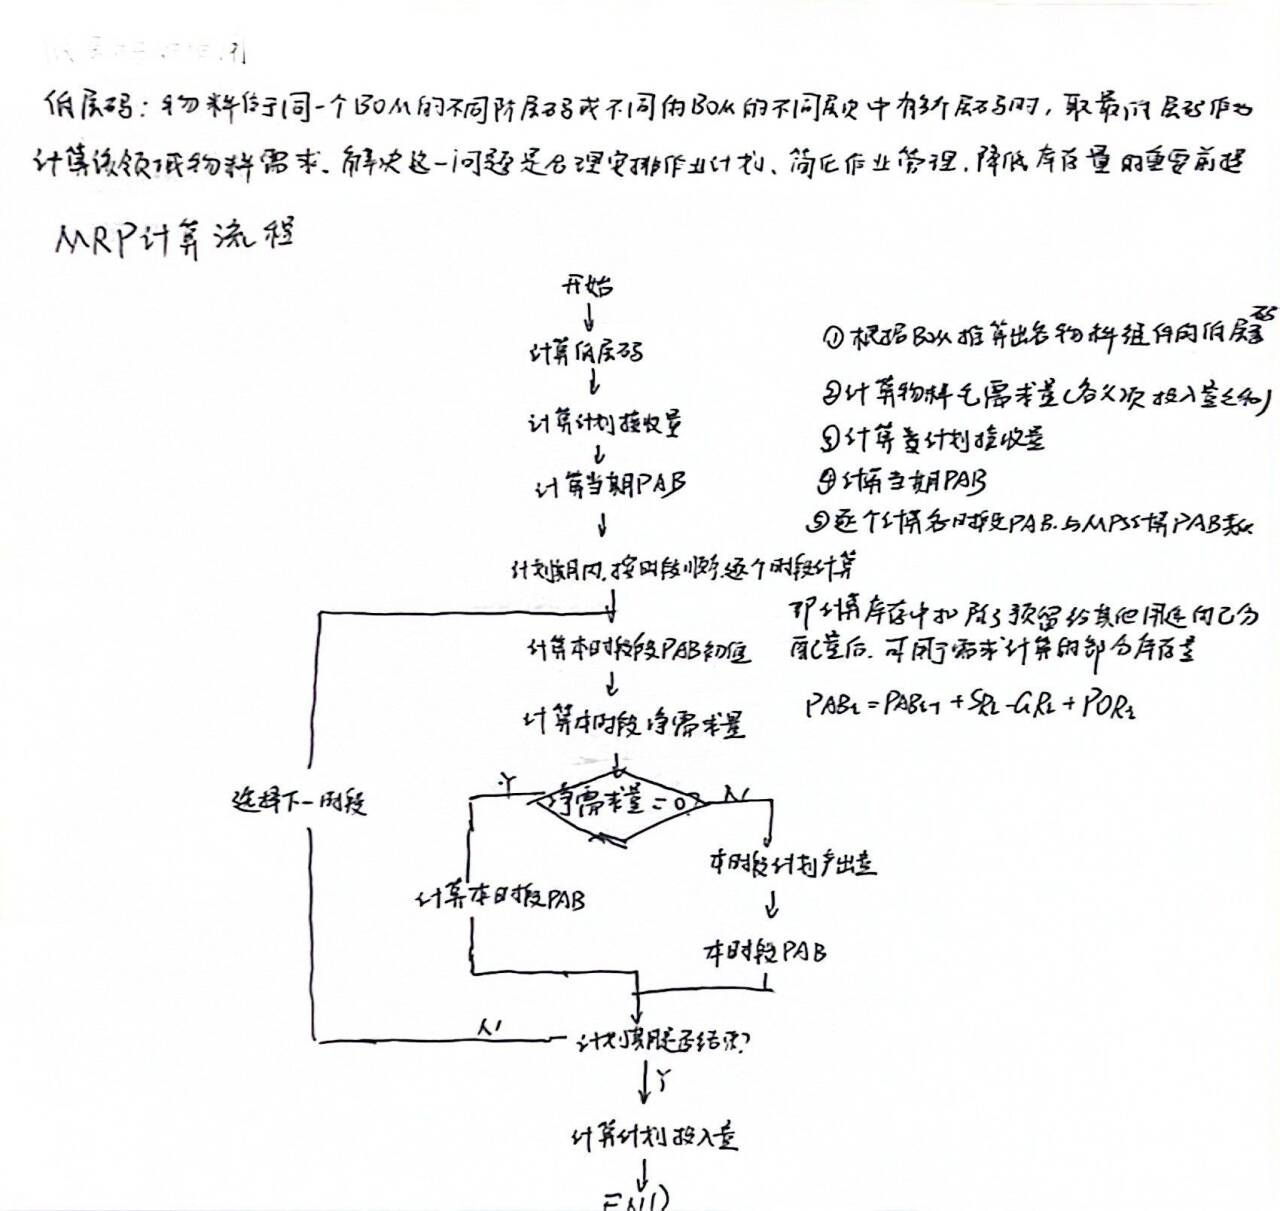 低层码：物料位于同一个BOM的不同阶层码或不同的BOM的不同层次中有多个层码时，取最低层码作为
计算该物料需求、解决这一问题是合理安排作业计划、简化作业管理、降低库存量的重要前提
MRP计算流程
开始
计算低层码
计算计划接收量
计算当期PAB
计划期内，按时段顺序，逐个时段计算
计算本时段段PAB初值
计算本时段净需求量
净需求量=0?
Y
N
选择下一时段
计算本时段PAB
本时段计划产出量
本时段PAB
N
计划期是否结束?
Y
计算计划投入量
END
①根据BOM推算出各物料组件的低层码
②计算物料毛需求量(各父项投入量之和)
③计算计划接收量
④计算当期PAB
⑤逐个计算各时段PAB.与MPS计算PAB
即计算库存中扣除了预留给其他用途的已分
配量后.可用于需求计算的部分库存量
PABt=PABt-1+SRt-GRt+PORt